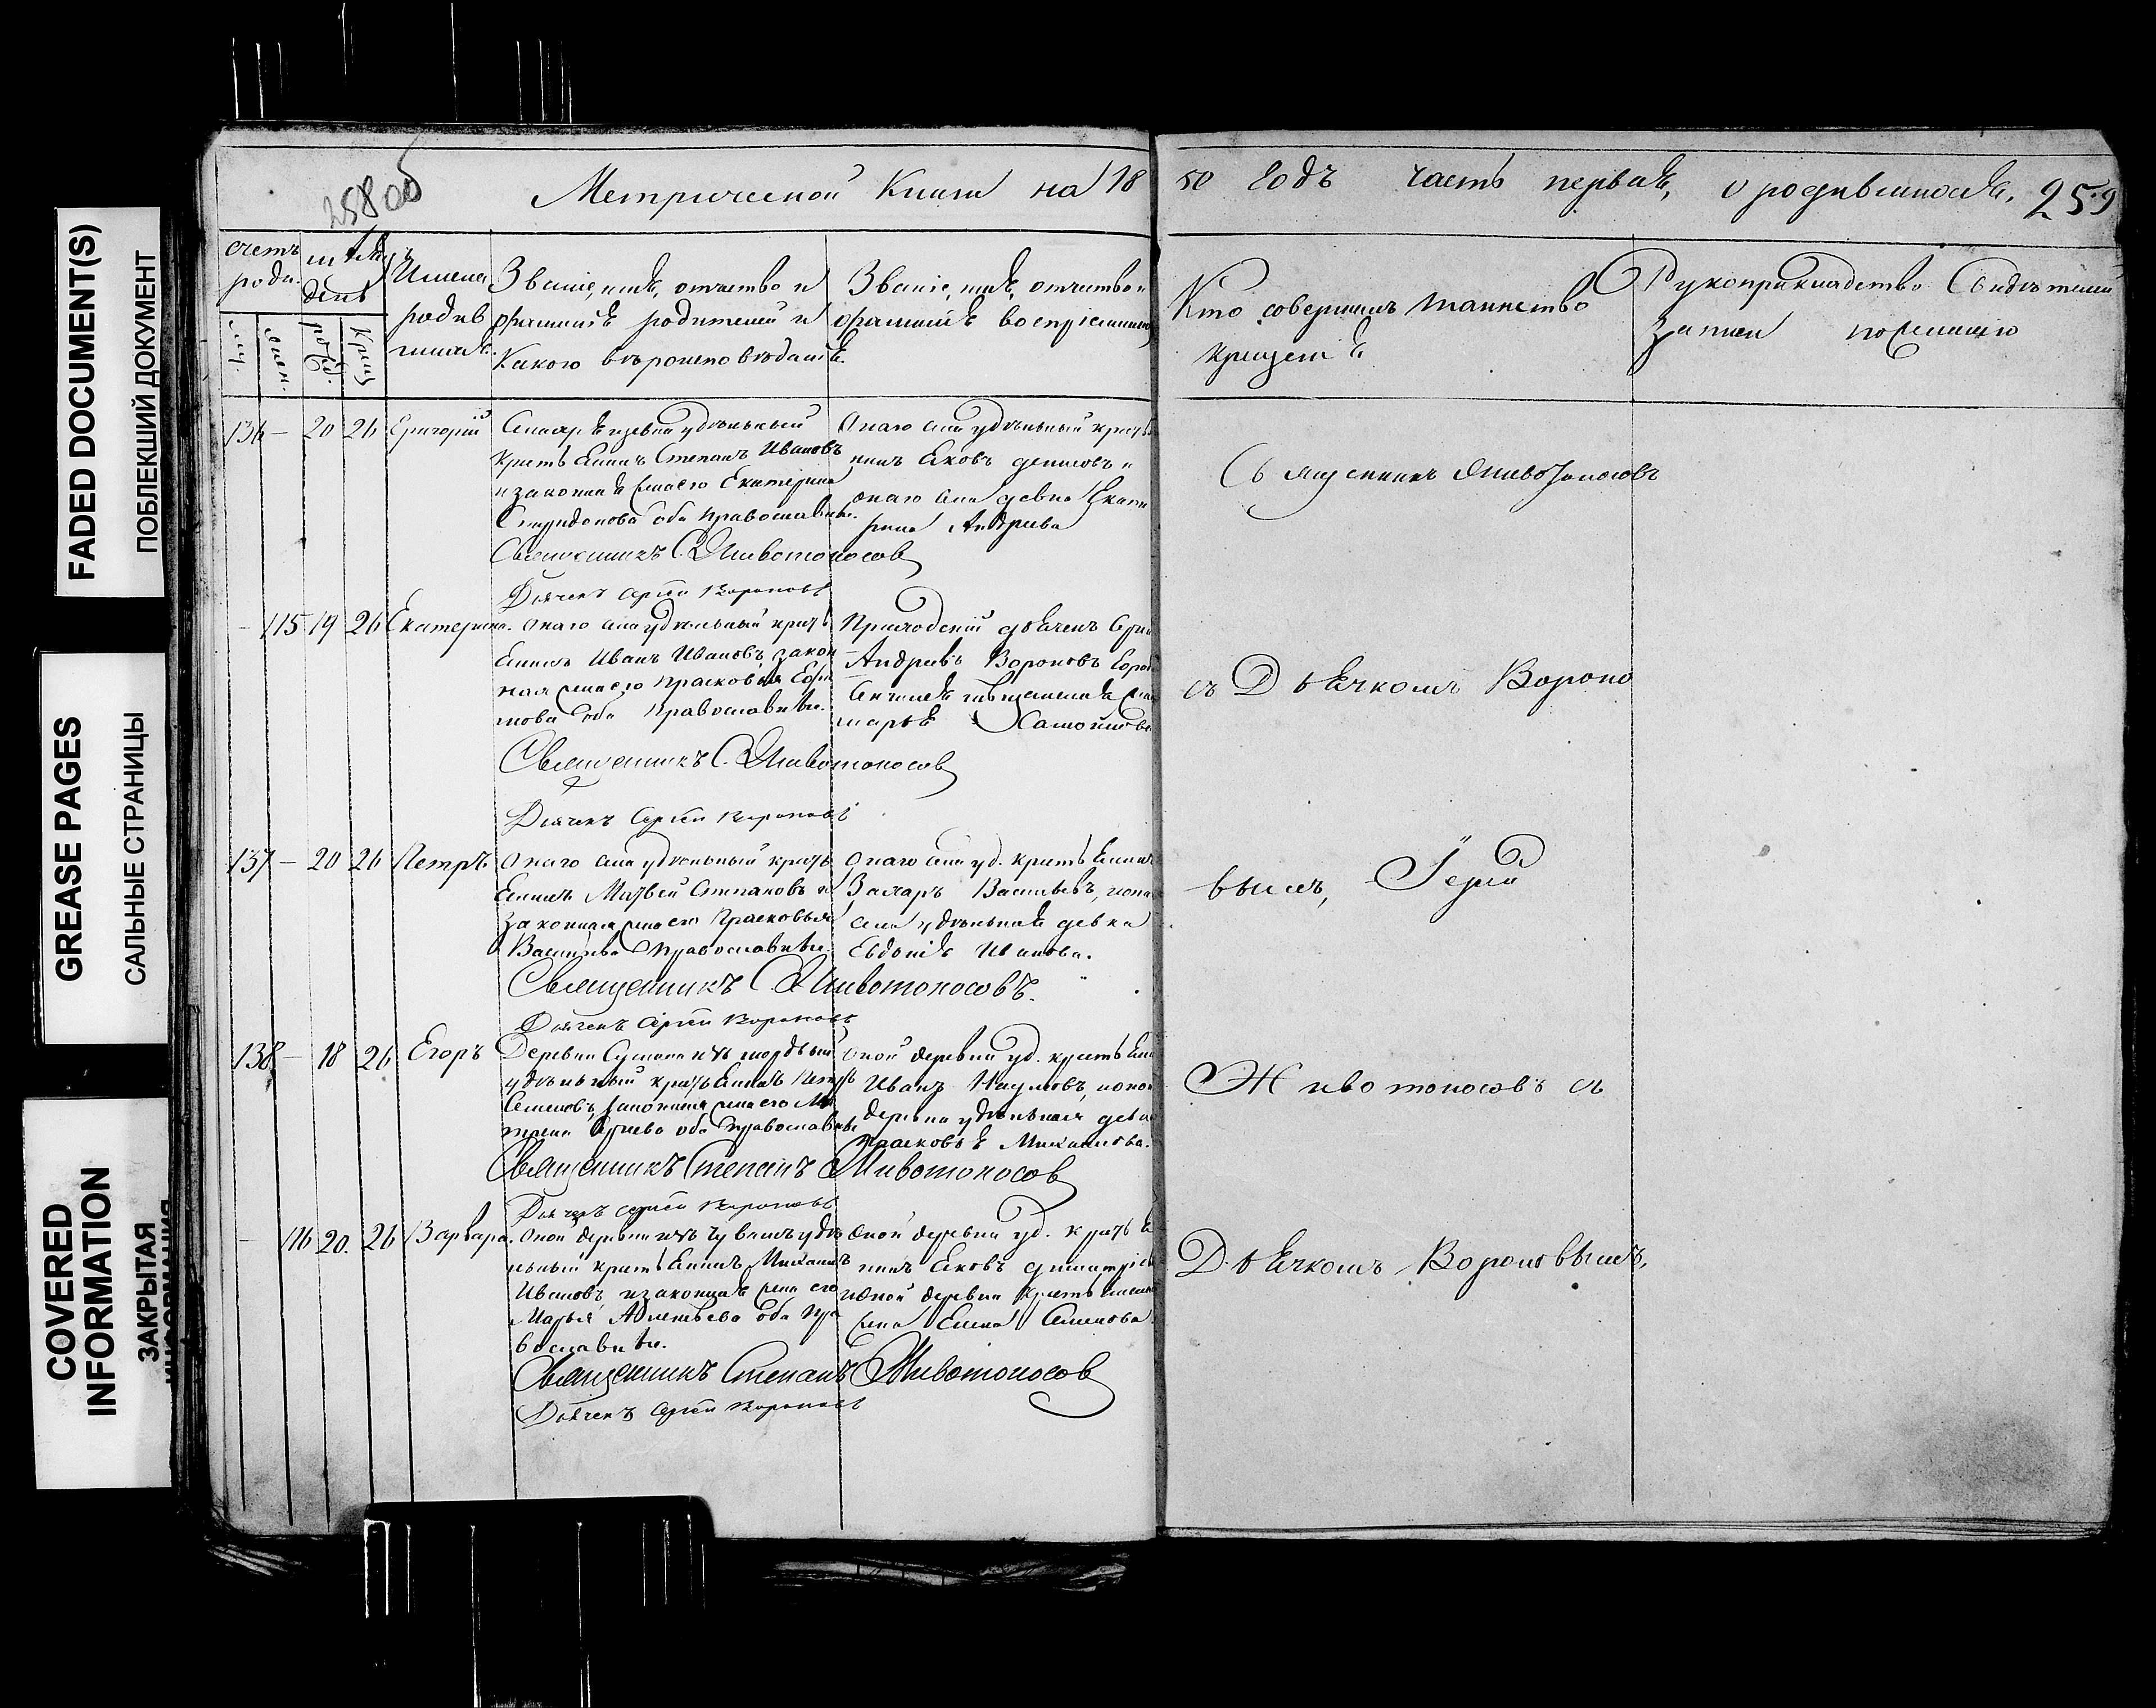 FADED DOCUMENT(S)
ПОБЛЕКШИЙ ДОКУМЕНТ
GREASE PAGES
САЛЬНЫЕ СТРАНИЦЫ
COVERED INFORMATION
ЗАКРЫТАЯ ИНФОРМАЦИЯ
Метрической Книги на 1850 годъ часть первая, о родившихся. 259
счетъ роди.
день
муж.
жен.
рожд.
крещ
Имена родившихся.
Званіе, имя, отчество и
фамилія родителей и
какого вѣроисповѣданія.
Званіе, имя, отчество и
фамилія воспріемниковъ
Кто совершилъ таинство
крещенія
Рукоприкладство свидѣтелей
записи по желанію
136 – 20 26 Григорій
удѣльный
крестьянинъ Степанъ Ивановъ
и законная жена его Екатерина
Спиридонова оба православные.
Онаго села удѣльный крестья
нинъ Яковъ Денисовъ и
онаго села девка Екате
рина Андреева
Священникъ С. Животоносов
Дьячекъ Сергій Вороновъ
– 115 19 26 Екатерина.
Онаго села удѣльный кресть
янинъ Иванъ Ивановъ, закон
ная жена его Прасковья
оба православные.
Приходскій дьячекъ Сергій
Андреевъ Вороновъ
Марья Самойлова
Священникъ С. Животоносов
Дьячекъ Сергій Вороновъ
137 – 20 26 Петръ
Онаго села удѣльный кресть
янинъ Матвей Степановъ и
законная жена его Прасковья
Васильева православные.
Онаго села уд. крестьянинъ
Захаръ Васильевъ,
села удѣльная девка
Евдокія Иванова.
Священникъ С. Животоносовъ.
Дьячекъ Сергій Вороновъ
138 – 18 26 Егоръ
Деревни изъ мордвы
удѣльный крестьянинъ Петръ
Семеновъ, законная жена его Ма
трена Сергеева оба православные
Оной деревни уд. крестьянинъ
Иванъ Наумовъ,
деревни удѣльная девка
Прасковья Михайлова.
Священникъ Степанъ Животоносов
Дьячекъ Сергій Вороновъ
– 116 20. 26 Варвара.
Оной деревни изъ чувашъ удѣ
льный крестьянинъ Михаилъ
Ивановъ и законная жена его
Марья оба пра
вославные.
Оной деревни уд. крестья
нинъ Яковъ
оной деревни
жена Елена Семенова.
Священникъ Степанъ Животоносов
Дьячекъ Сергій Вороновъ
Священникъ Животоносовъ
съ Дьячкомъ Вороно
вымъ, Іерей
Животоносовъ съ
Дьячкомъ Вороновымъ,